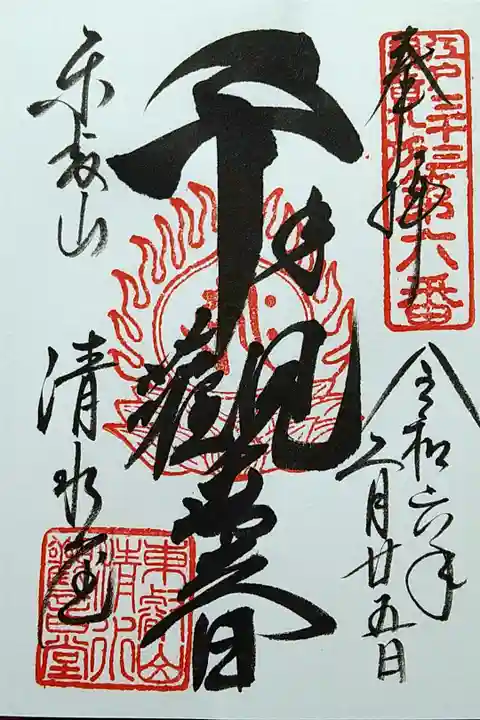 奉拝
江戸三十三
観音札所第六番
令和六年
二月廿五日
千手觀音
東叡山
清水堂
東叡山
清水
觀音堂